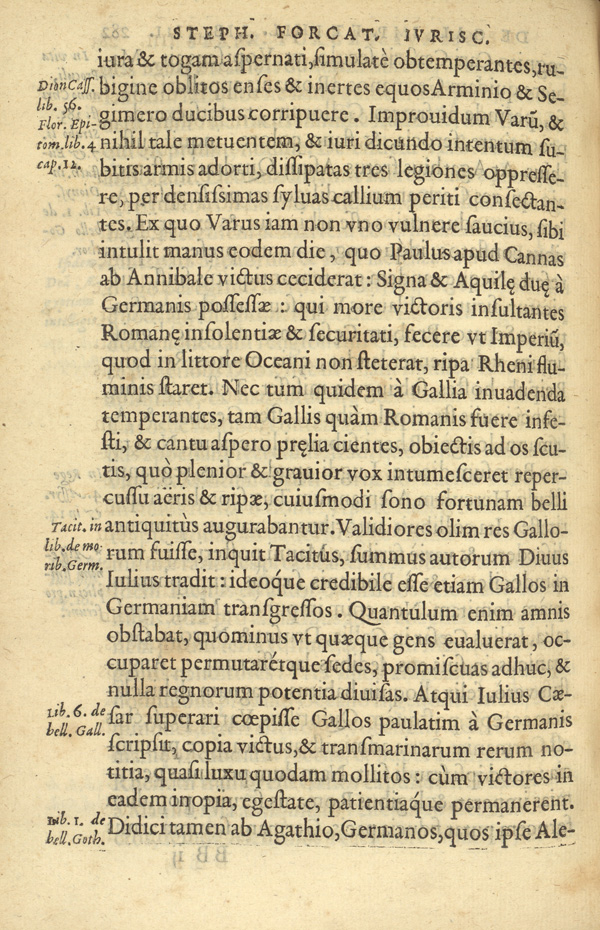 STEPH. FORCAT. IVRISC.
iura & togam aspernati, simulatè obtemperantes, ru-
bigine oblitos enses & inertes equos Arminio & Se-
gimero ducibus corripuere. Improuidum Varũ, &
nihil tale metuentem, & iuri dicundo intentum su-
bitis armis adorti, dissipatas tres legiones oppresse-
re, per densissimas syluas callium periti consectan-
tes. Ex quo Varus iam non vno vulnere saucius, sibi
intulit manus eodem die, quo Paulus apud Cannas
ab Annibale victus ceciderat: Signa & Aquilę duę à
Germanis possessæ: qui more victoris insultantes
Romanę insolentiæ & securitati, fecere vt Imperiũ,
quod in littore Oceani non steterat, ripa Rheni flu-
minis staret. Nec tum quidem à Gallia inuadenda
temperantes, tam Gallis quàm Romanis fuere infe-
sti, & cantu aspero pręlia cientes, obiectis ad os scu-
tis, quò plenior & grauior vox intumesceret reper-
cussu aëris & ripæ, cuiusmodi sono fortunam belli
antiquitùs augurabantur. Validiores olim res Gallo-
rum fuisse, inquit Tacitus, summus autorum Diuus
Iulius tradit: ideóque credibile esse etiam Gallos in
Germaniam transgressos. Quantulum enim amnis
obstabat, quominus vt quæque gens eualuerat, oc-
cuparet permutarétque sedes, promiscuas adhuc, &
nulla regnorum potentia diuisas. Atqui Iulius Cæ-
sar superari cœpisse Gallos paulatim à Germanis
scripsit, copia victus, & transmarinarum rerum no-
titia, quasi luxu quodam mollitos: cùm victores in
eadem inopia, egestate, patientiáque permanerent.
Didici tamen ab Agathio, Germanos, quos ipse Ale-
Dion Cass.
lib. 56.
Flor. Epi-
tom. lib. 4
cap. 12.
Tacit. in
lib. de mo
rib. Germ.
Lib. 6. de
bell. Gall.
Lib. 1. de
bell. Goth.